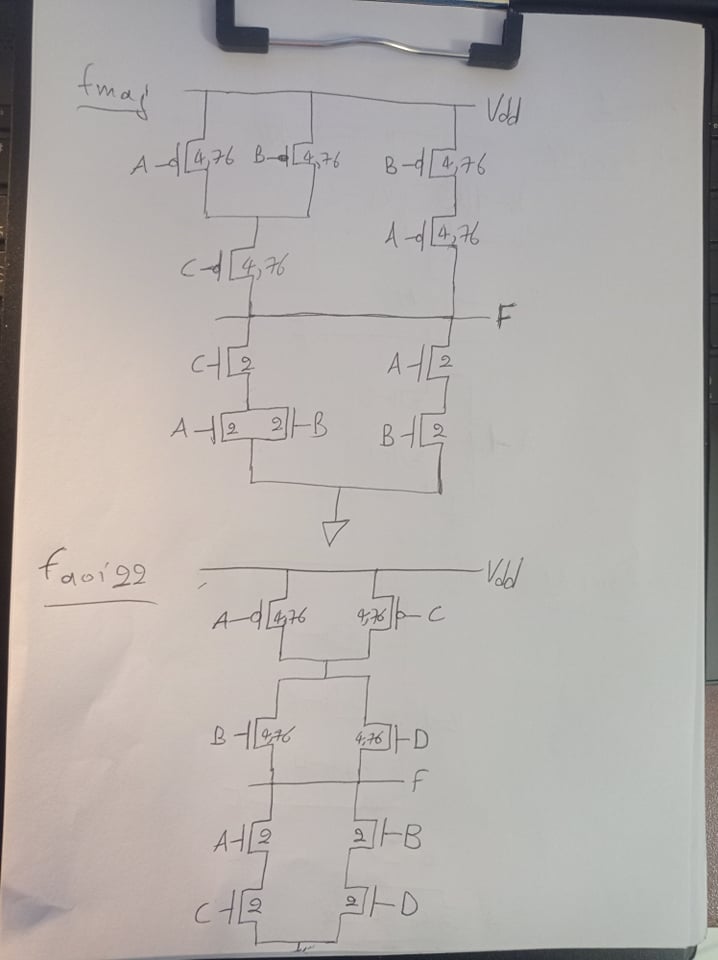 fmaj
Vdd
A 4,76 B 4,76 B 4,76
A 4,76
C 4,76
F
C 2 A 2
A 2 2 B B 2
faoi22
Vdd
A 4,76 4,76 C
B 4,76 4,76 D
F
A 2 2 B
C 2 2 D